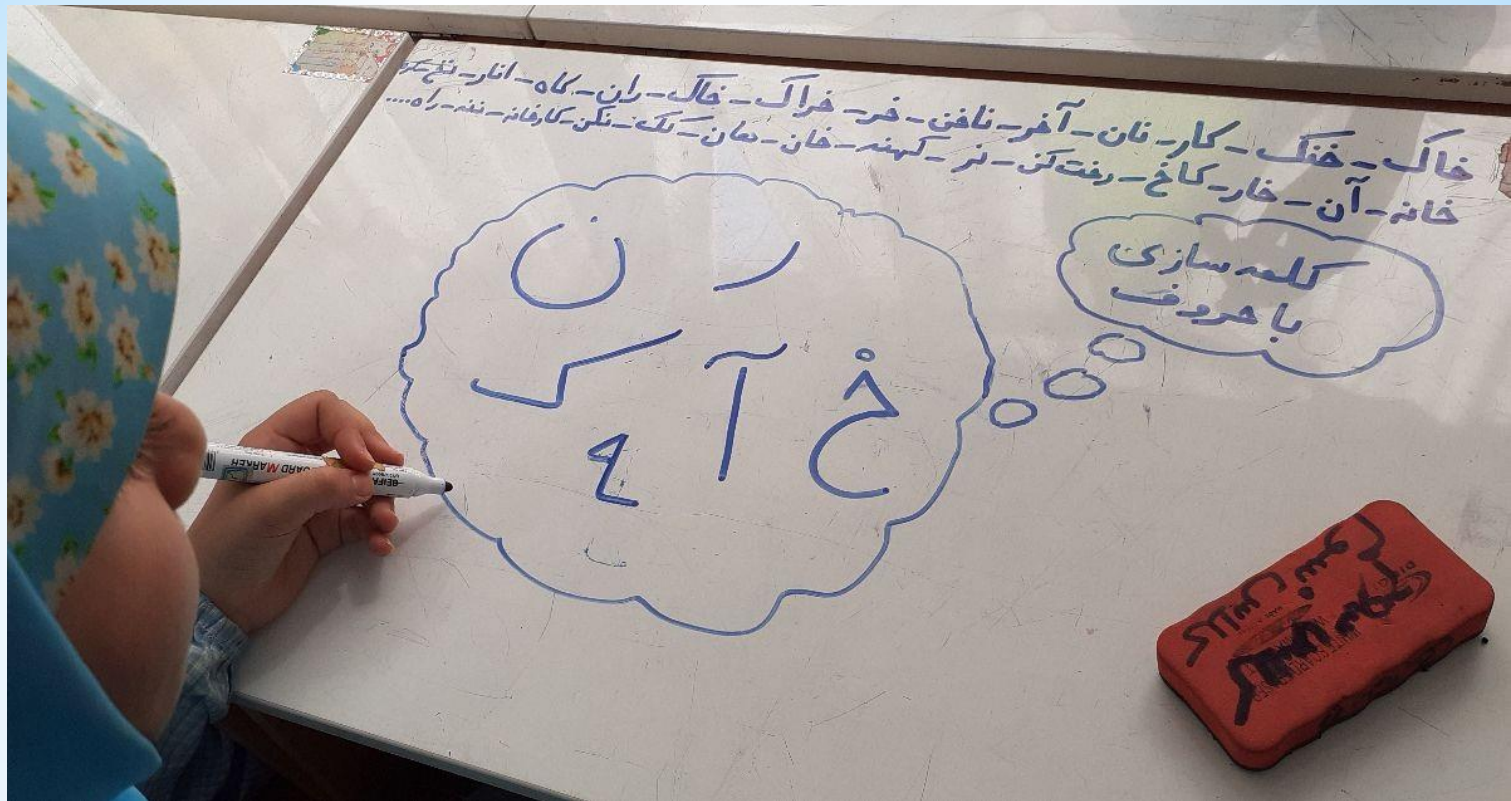 خاک - خنک - کار - نان - آخر - ناخن - خر - خراک - خاک - ران - کاه - انار - نخ
خانه - آن - خار - کاخ - رخت‌کن - نر - کهنه - خان - هان - تک - نکن - کارخانه - ننه - راه....
کلمه سازی
با حروف
ر ن
خ آ ک
ه
کلاس سوم
کلاس سوم
BOARD MARKER